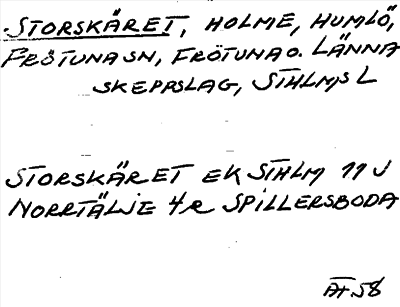 STORSKÄRET, HOLME, HUMLÖ,
FRÖTUNA SN, FRÖTUNA O. LÄNNA
SKEPPSLAG, STHLMS L
STORSKÄRET EK STHLM 11 J
NORRTÄLJE 4 R SPILLERSBODA
ÄT 58